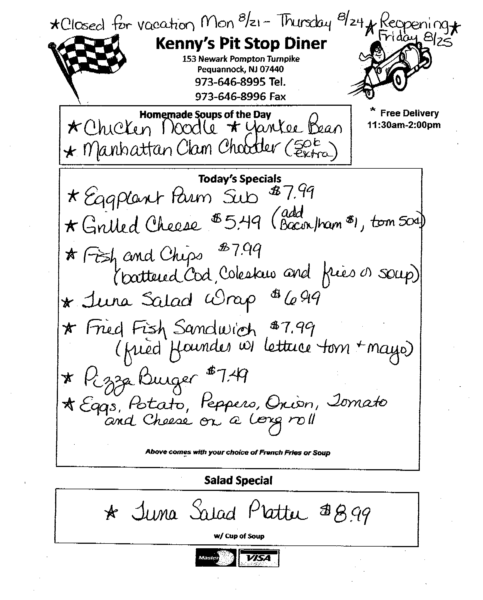 *Closed for vacation Mon 8/21 - Thursday 8/24 * Reopening *
Friday 8/25
Kenny's Pit Stop Diner
153 Newark Pompton Turnpike
Pequannock, NJ 07440
973-646-8995 Tel.
973-646-8996 Fax
* Free Delivery
11:30am-2:00pm
Homemade Soups of the Day
* Chicken Noodle * Yankee Bean
* Manhattan Clam Chowder (50¢ extra)
Today's Specials
* Eggplant Parm Sub $7.99
* Grilled Cheese $5.49 (add Bacon/ham $1, tom 50¢)
* Fish and Chips $7.99
(battered Cod, Coleslaw and fries or soup)
* Tuna Salad Wrap $6.99
* Fried Fish Sandwich $7.99
(fried flounder w/ lettuce tom + mayo)
* Pizza Burger $7.49
* Eggs, Potato, Peppers, Onion, Tomato
and Cheese on a long roll
Above comes with your choice of French Fries or Soup
Salad Special
* Tuna Salad Platter $8.99
w/ Cup of Soup
Master VISA